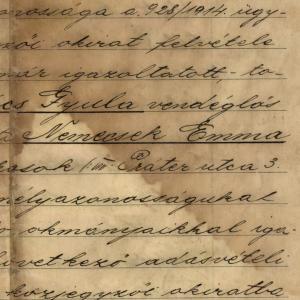 onossága a 928/1914. ügy-
zői okirat felvétele
már igazoltatott - to-
cs Gyula vendéglős
Nemecsek Emma
kasok I. III Práter utca 3.
mélyazonosságukat
okmányaikkal iga-
övetkező adásvételi
közjegyzői okiratba